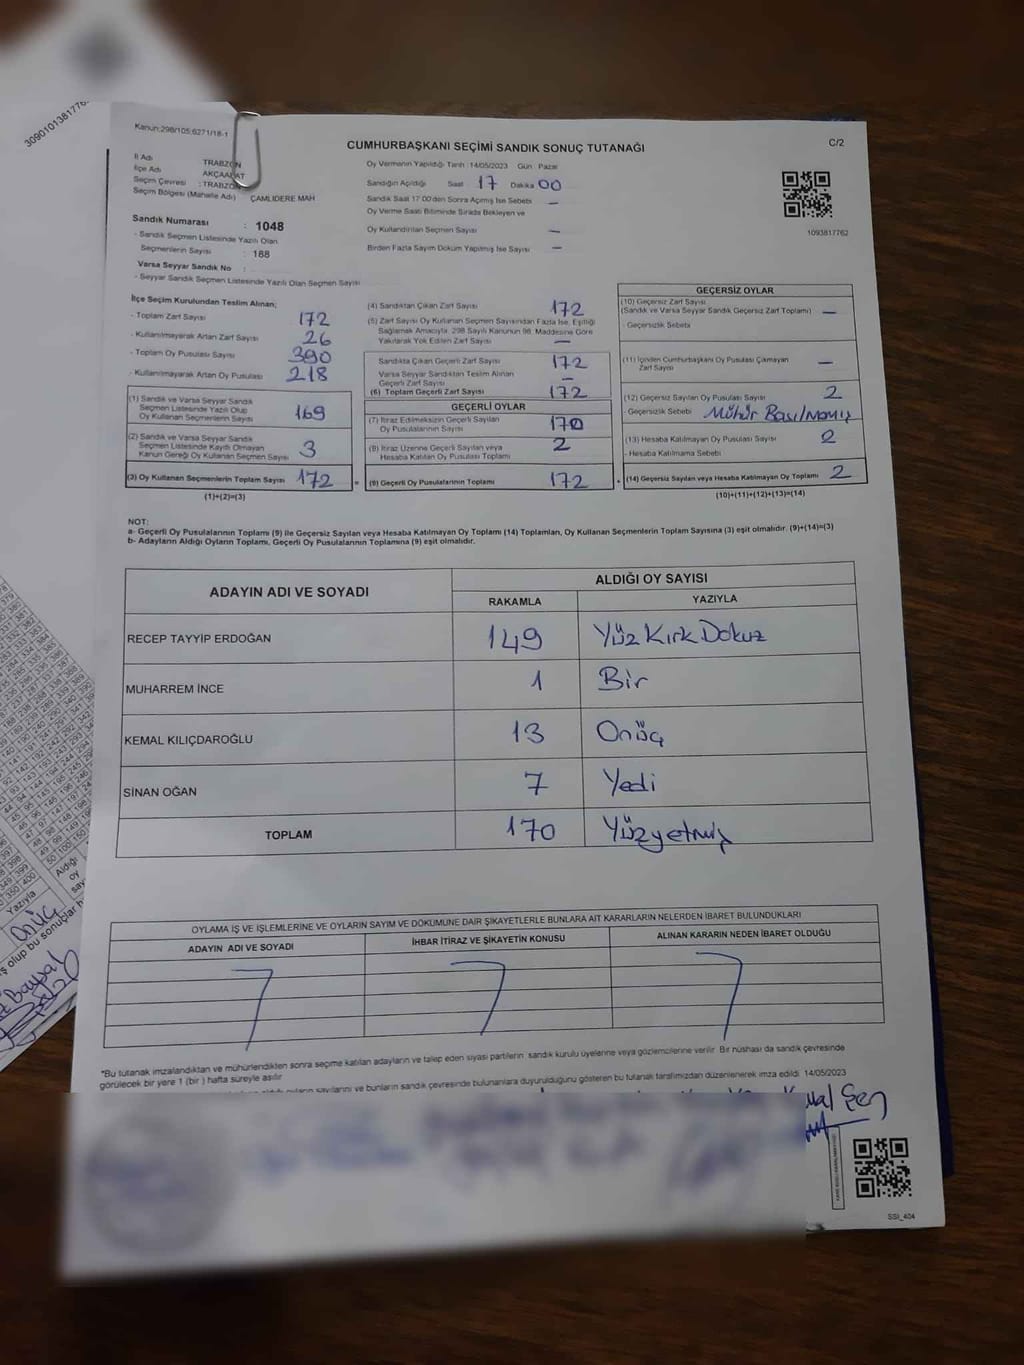 3090101381776
Kanun:298/105;6271/18-1
CUMHURBAŞKANI SEÇİMİ SANDIK SONUÇ TUTANAĞI
C/2
İl Adı TRABZON
İlçe Adı AKÇAABAT
Seçim Çevresi : TRABZON
Seçim Bölgesi (Mahalle Adı) ÇAMLIDERE MAH
Sandık Numarası : 1048
- Sandık Seçmen Listesinde Yazılı Olan
Seçmenlerin Sayısı : 188
Varsa Seyyar Sandık No :
- Seyyar Sandık Seçmen Listesinde Yazılı Olan Seçmen Sayısı
Oy Vermenin Yapıldığı Tarih :14/05/2023 Gün : Pazar
Sandığın Açıldığı Saat 17 Dakika 00
Sandık Saat 17:00'den Sonra Açılmış İse Sebebi —
Oy Verme Saati Bitiminde Sırada Bekleyen ve
Oy Kullandırılan Seçmen Sayısı —
Birden Fazla Sayım Döküm Yapılmış İse Sayısı —
1093817762
İlçe Seçim Kurulundan Teslim Alınan;
- Toplam Zarf Sayısı 172
- Kullanılmayarak Artan Zarf Sayısı 26
- Toplam Oy Pusulası Sayısı 390
- Kullanılmayarak Artan Oy Pusulası 218
(1) Sandık ve Varsa Seyyar Sandık
Seçmen Listesinde Yazılı Olup
Oy Kullanan Seçmenlerin Sayısı 169
(2) Sandık ve Varsa Seyyar Sandık
Seçmen Listesinde Kayıtlı Olmayan
Kanun Gereği Oy Kullanan Seçmen Sayısı 3
(3) Oy Kullanan Seçmenlerin Toplam Sayısı 172 =
(1)+(2)=(3)
(4) Sandıktan Çıkan Zarf Sayısı 172
(5) Zarf Sayısı Oy Kullanan Seçmen Sayısından Fazla İse, Eşitliği
Sağlamak Amacıyla, 298 Sayılı Kanunun 98. Maddesine Göre
Yakılarak Yok Edilen Zarf Sayısı —
Sandıkta Çıkan Geçerli Zarf Sayısı 172
Varsa Seyyar Sandıktan Teslim Alınan
Geçerli Zarf Sayısı —
(6) Toplam Geçerli Zarf Sayısı 172
GEÇERLİ OYLAR
(7) İtiraz Edilmeksizin Geçerli Sayılan
Oy Pusulalarının Sayısı 170
(8) İtiraz Üzerine Geçerli Sayılan veya
Hesaba Katılan Oy Pusulası Toplamı 2
(9) Geçerli Oy Pusulalarının Toplamı 172 +
GEÇERSİZ OYLAR
(10) Geçersiz Zarf Sayısı
(Sandık ve Varsa Seyyar Sandık Geçersiz Zarf Toplamı) —
- Geçersizlik Sebebi
(11) İçinden Cumhurbaşkanı Oy Pusulası Çıkmayan
Zarf Sayısı —
(12) Geçersiz Sayılan Oy Pusulası Sayısı 2
- Geçersizlik Sebebi Mühür Basılmamış
(13) Hesaba Katılmayan Oy Pusulası Sayısı
- Hesaba Katılmama Sebebi
(14) Geçersiz Sayılan veya Hesaba Katılmayan Oy Toplamı 2
(10)+(11)+(12)+(13)=(14)
NOT:
a- Geçerli Oy Pusulalarının Toplamı (9) ile Geçersiz Sayılan veya Hesaba Katılmayan Oy Toplamı (14) Toplamları, Oy Kullanan Seçmenlerin Toplam Sayısına (3) eşit olmalıdır. (9)+(14)=(3)
b- Adayların Aldığı Oyların Toplamı, Geçerli Oy Pusulalarının Toplamına (9) eşit olmalıdır.
ADAYIN ADI VE SOYADI
ALDIĞI OY SAYISI
RAKAMLA YAZIYLA
RECEP TAYYİP ERDOĞAN 149 Yüz Kırk Dokuz
MUHARREM İNCE 1 Bir
KEMAL KILIÇDAROĞLU 13 Onüç
SİNAN OĞAN 7 Yedi
TOPLAM 170 Yüzyetmiş
OYLAMA İŞ VE İŞLEMLERİNE VE OYLARIN SAYIM VE DÖKÜMÜNE DAİR ŞİKAYETLERLE BUNLARA AİT KARARLARIN NELERDEN İBARET BULUNDUKLARI
ADAYIN ADI VE SOYADI İHBAR İTİRAZ VE ŞİKAYETİN KONUSU ALINAN KARARIN NEDEN İBARET OLDUĞU
*Bu tutanak imzalandıktan ve mühürlendikten sonra seçime katılan adayların ve talep eden siyasi partilerin sandık kurulu üyelerine veya gözlemcilerine verilir. Bir nüshası da sandık çevresinde
görülecek bir yere 1 (bir) hafta süreyle asılır
oyların sayılarını ve bunların sandık çevresinde bulunanlara duyurulduğunu gösteren bu tutanak tarafımızdan düzenlenerek imza edildi. 14/05/2023
SSI_404
Yazıyla
Aldığı
oy
Onüç